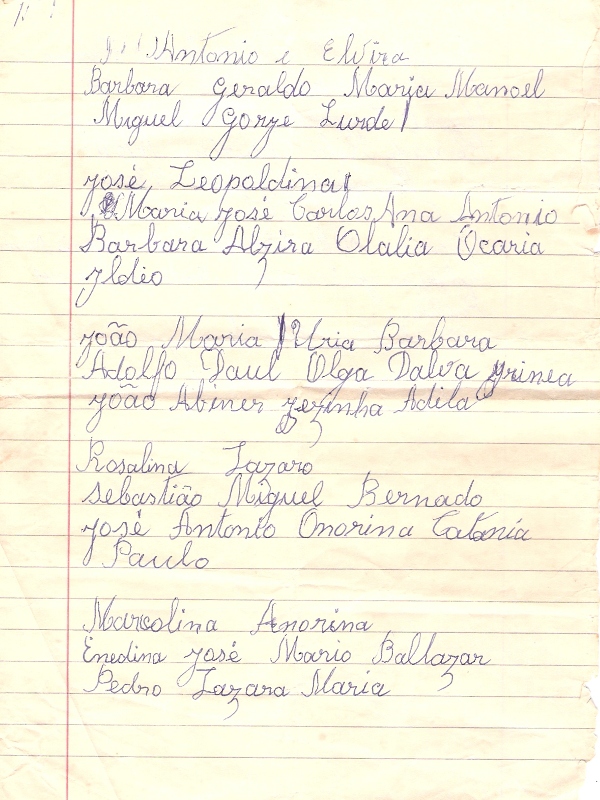 Antonio e Elvira
Barbara Geraldo Maria Manoel
Miguel Gorge Lurde
José Leopoldina
Maria José Carlos Ana Antonio
Barbara Alzira Olalia Ocaria
Ildio
João Maria Uria Barbara
Adolfo Paul Olga Dalva Irinea
João Abiner Zezinha Adila
Rosalina Lazaro
Sebastião Miguel Bernado
José Antonio Onorina Catania
Paulo
Marcolina Anorina
Enedina José Mario Baltazar
Pedro Lazara Maria